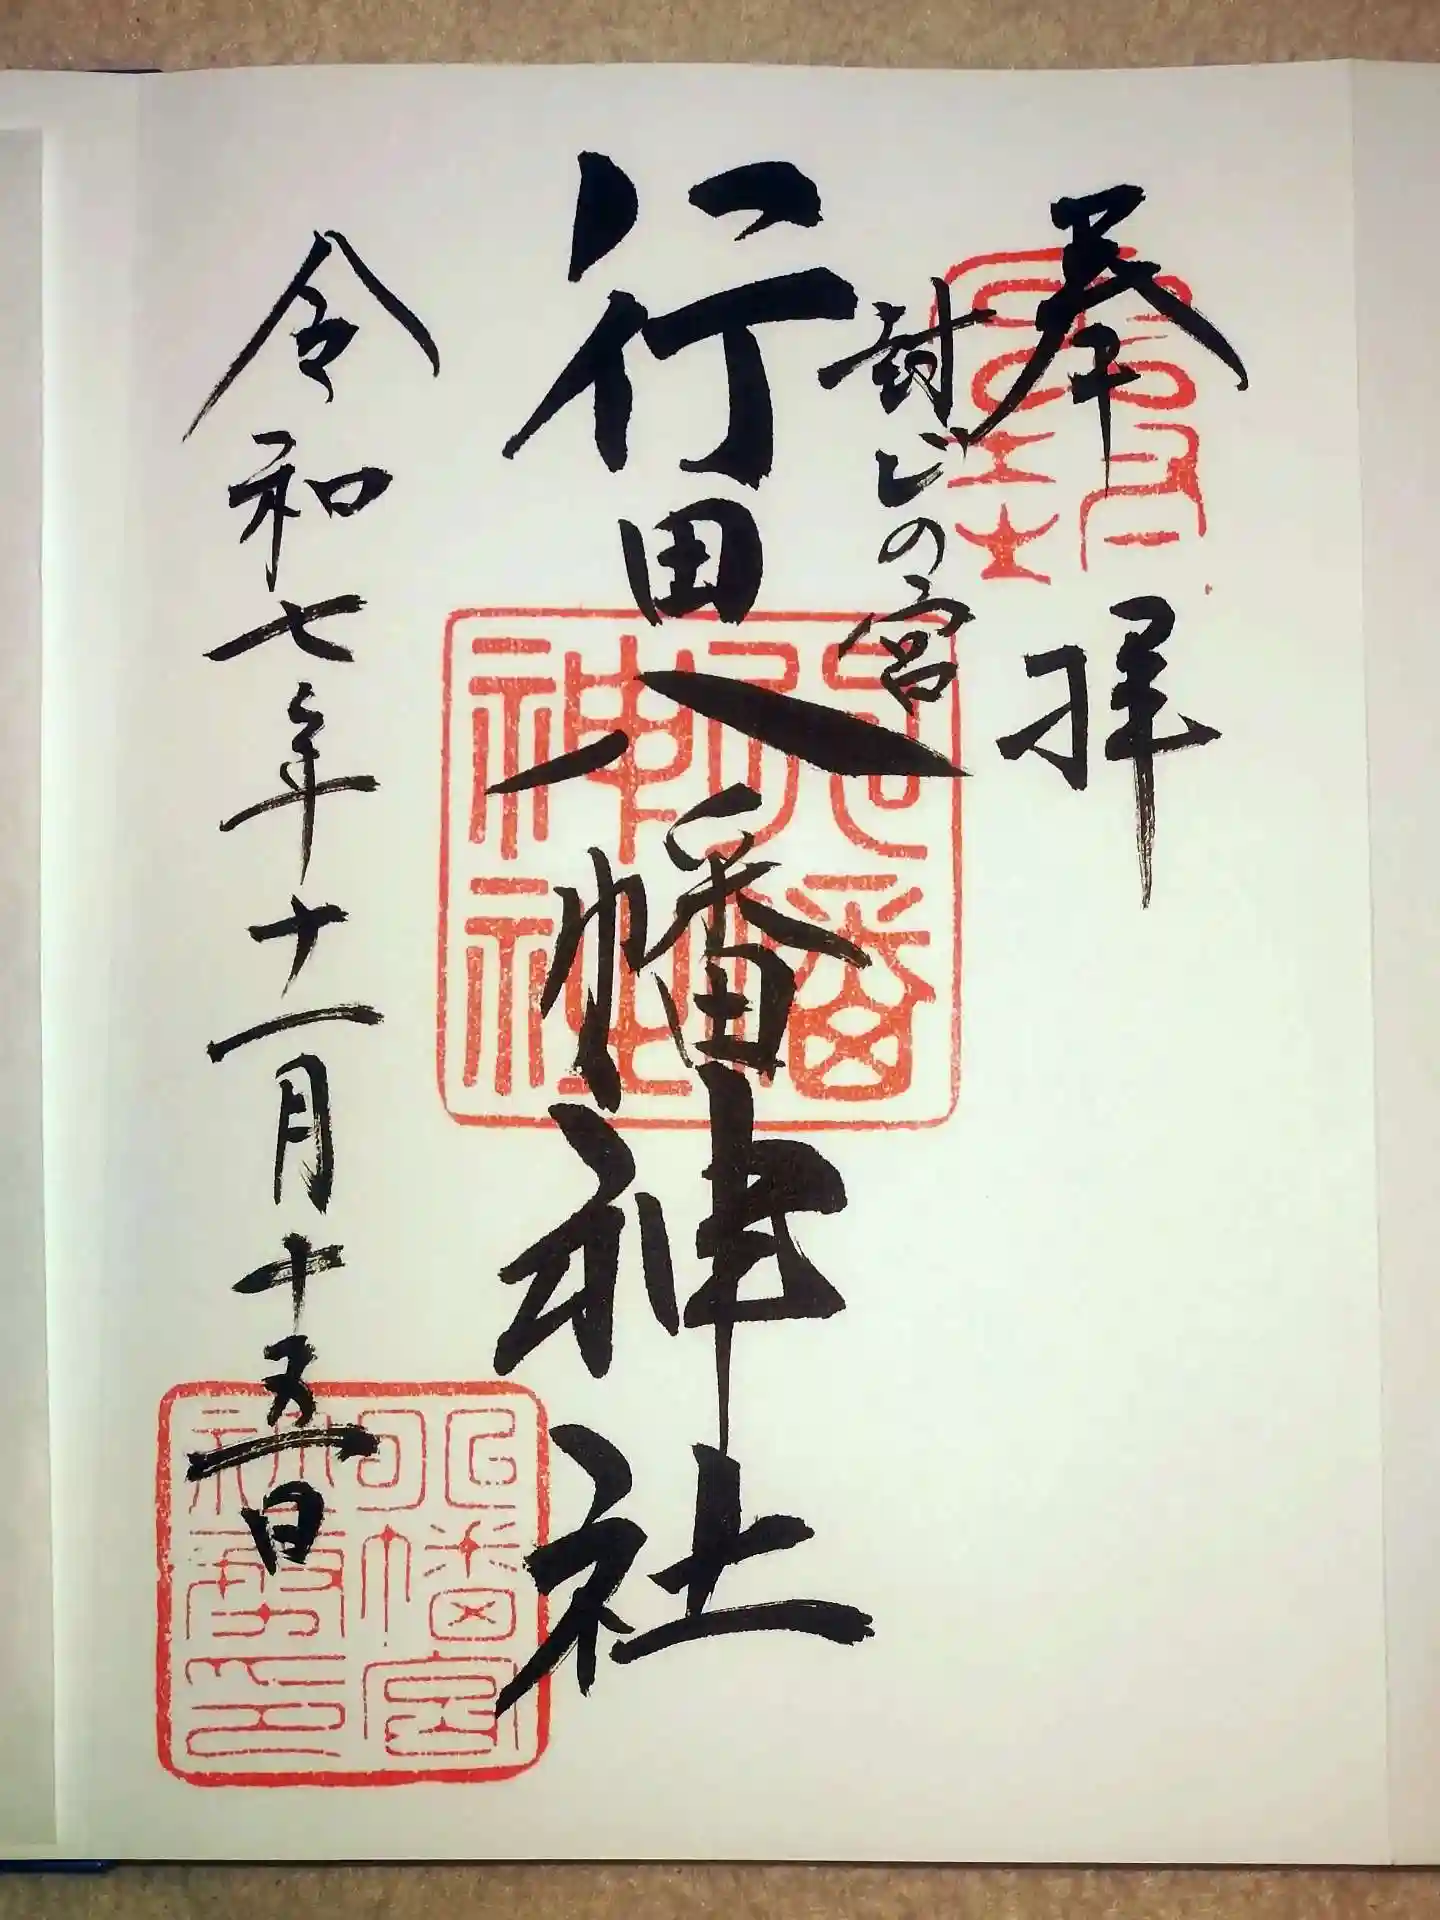 奉拝
封じの宮
行田八幡神社
令和七年十一月十五日
八幡神社